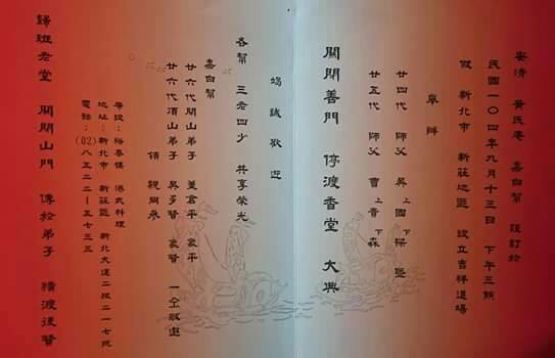 安清 黃氏庵 嘉白幫 謹訂於
民國一〇四年九月十三日 下午三時
假 新北市 新莊地區 設立吉祥道場
舉辦
廿四代 師父 吳 上國 下楊
廿五代 師父 曹 上青 下森
關閉善門 停渡香堂 大典
竭誠歡迎
各幫 三老四少 共享榮光
嘉白幫
廿六代 山弟子
廿六代頂山弟子 吳多賢 一仝敬邀
領 親同參
席設： 港式料理
地址：新北市 新莊區 新北大道二段二一七號
電話：(02)八五二二－五七三三
歸班老堂 關閉山門 傳於弟子 橫渡後賢